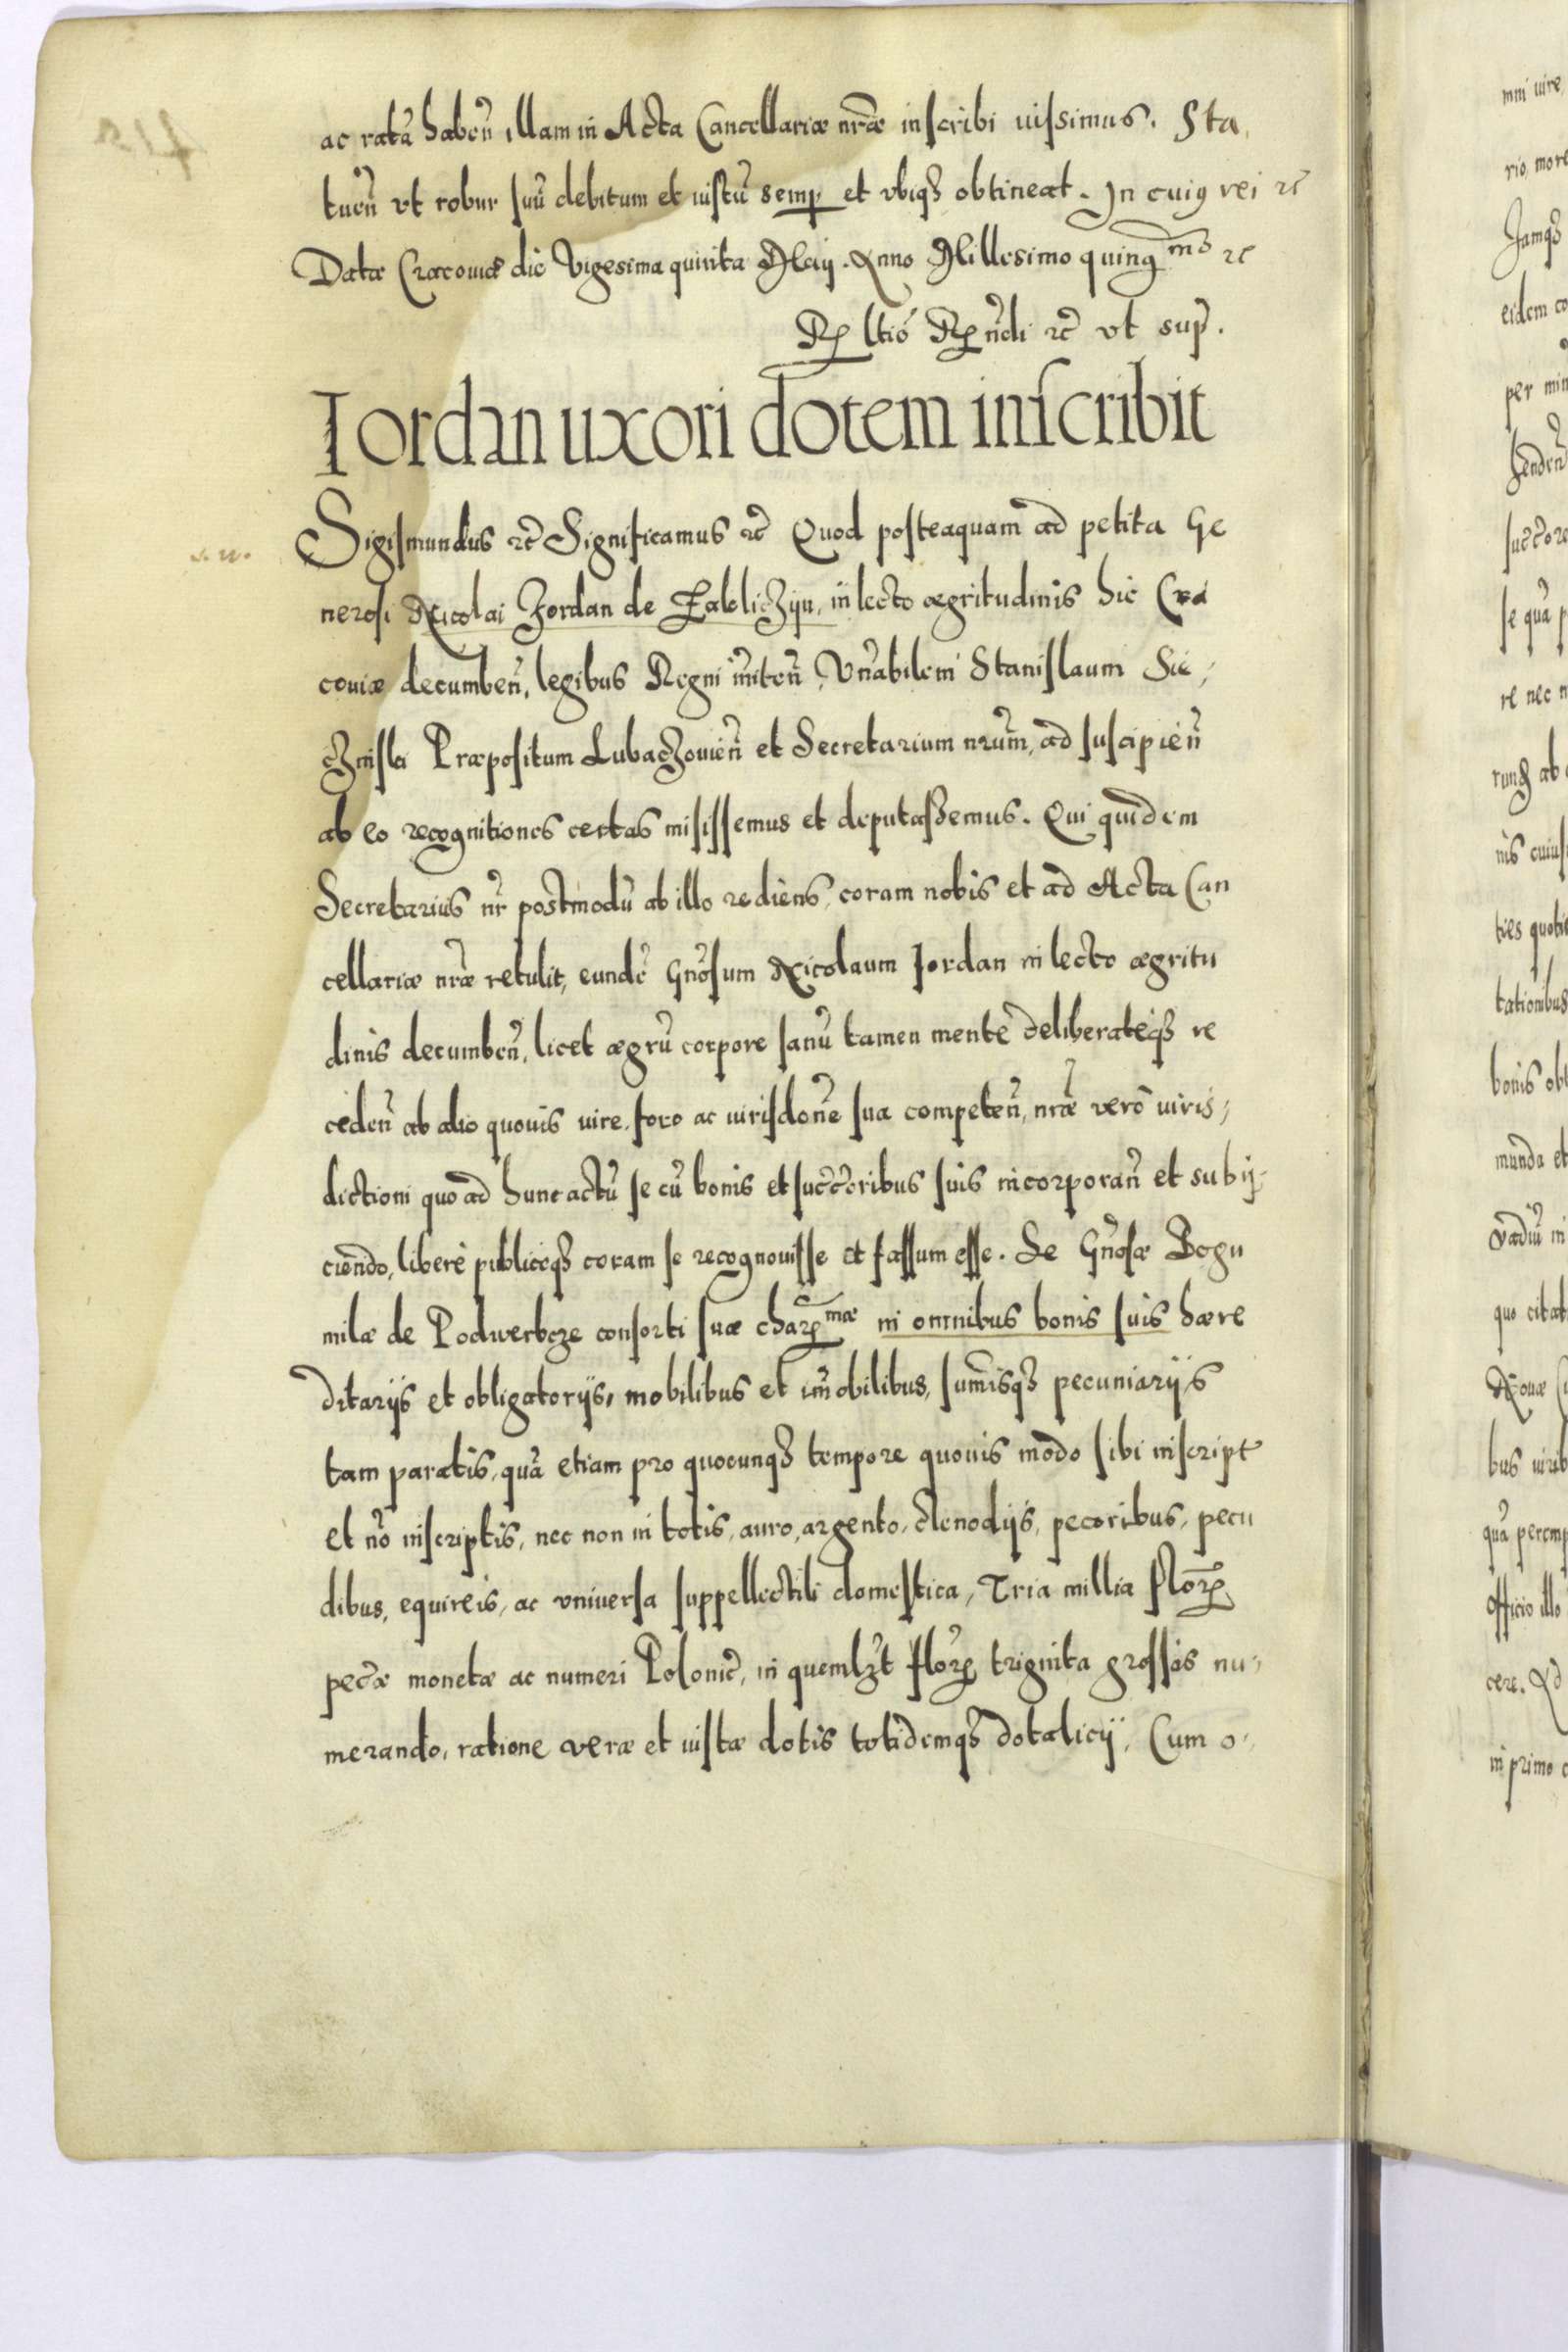 ac ratā habeñ illam in Acta Cancellariæ nr̃æ inscribi iussimus. Sta,
tueñ vt robur suū debitum et iustū semp et vbiqȝ obtineat. In cuiꝰ rei ꝛc̃
Datæ Cracouiæ die Vigesima quinta Maij. Anno Millesimo quingᵐᵒ ꝛc
Rꝑ ltio Rꝑ ñdi ꝛc̃ vt sup̃.
Iordan uxori dotem inscribit
Sigismundus ꝛc̃ Significamus ꝛc̃ Quod posteaquam ad petita Ge
nerosi Nicolai Jordan de Zakliczyn, in lecto ægritudinis hic Cra
couiæ decumbeñ, legibus Regni ĩniteñ, Vñabilem Stanislaum Sie,
Præpositum Lubaczouieñ et Secretarium nrũm, ad suscipieñ
ab eo recognitiones certas misissemus et deputassemus. Qui quidem
Secretarius nr̃ postmodū ab illo rediens, coram nobis et ad Acta Can
cellariæ nr̃æ retulit, eundē Gñosum Nicolaum Jordan in lecto ægritu
dinis decumbeñ, licet ægrū corpore sanū tamen mente deliberateqȝ re
cedeñ ab alio quouis iure, foro ac iurisdoñe sua competeñ, nr̃æ verò iuris,
dictioni quo ad hunc actū se cū bonis et succ̃oribus suis incorporañ et subij,
ciendo, liberè publiceqȝ coram se recognouisse et fassum esse. Se Gñosæ Bogu
milæ de Podwerbcze consorti suæ charꝑᵐᵃᵉ in omnibus bonis suis hære
ditarijs et obligatorijs, mobilibus et im̃obilibus, sum̃isqȝ pecuniarijs
tam paratis, quā etiam pro quocunqȝ tempore quouis modo sibi inscript
et nō inscriptis, nec non in totis, auro, argento, clenodijs, pecoribus, pecu
dibus, equireis, ac vniuersa suppellectili domestica, Tria millia floꝝ
pec̃æ monetæ ac numeri Polonic̃, in quemlȝt floꝝ triginta grossos nu,
merando, ratione veræ et iustæ dotis totidemqȝ dotalicij, Cum o,